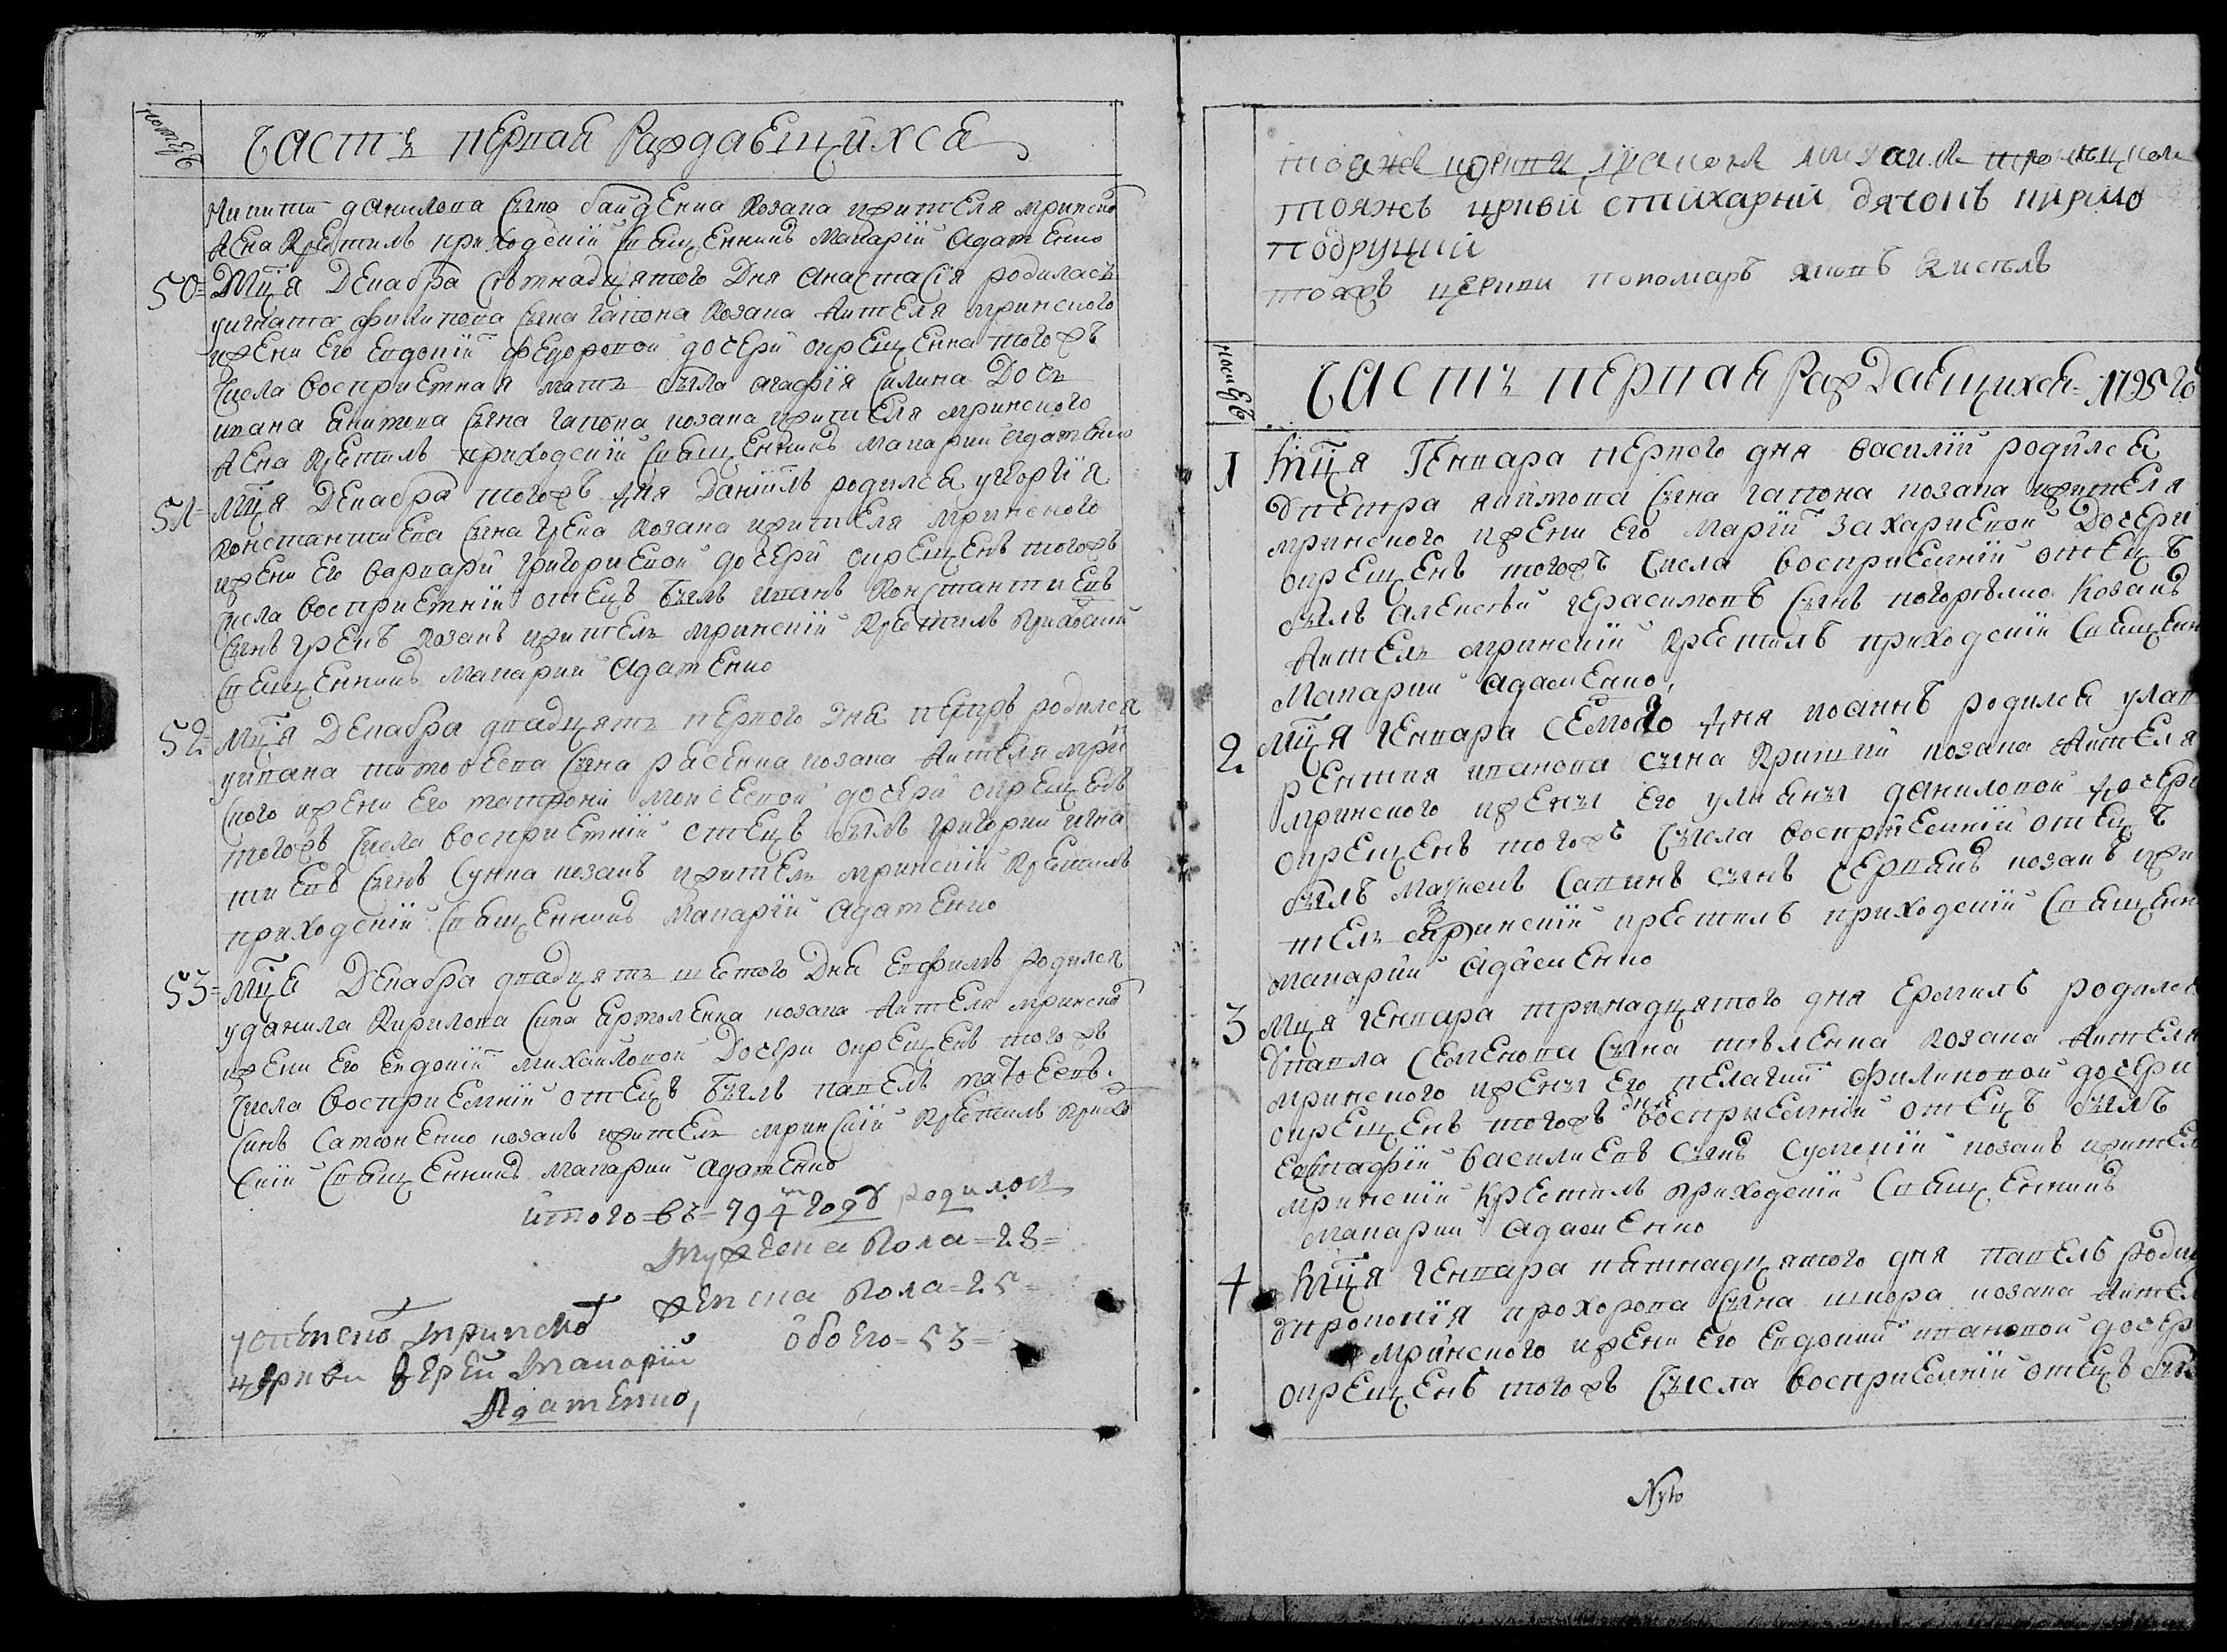 Часть первая раждаещихся
Никити данилова сына байденка козака жителя мринско
лена крестилъ приходскій священникъ Макарій Адаменко
50 Мца Декабря сѣмнадцятого Дня Анастасія родилась
уигната филипова сына гапона козака жителя мринского
ижени его евдокіи федоровой дочери окрещенна тогожъ
числа восприемная мать была агафія Дочь
ивана сына гапона козака жителя мринского
крестилъ приходскій священникъ макарий адаменко
51 Мця Декабря тогожъ дня Даніилъ родился угеоргія
константиева сына грека козака жителя мринского
ижени его варвари григориевой дочери окрещенъ тогожъ
числа восприемній отецъ былъ иванъ Константиевъ
сынъ грекъ козакъ житель мринскій крестилъ приходскій
священникъ макарий адаменко
52 Мця Декабря двадцять первого дня петръ родился
уивана тимофеева сына козака жителя мрин
ского ижени его матрони моисеевой дочери окрещенъ
тогожъ числа восприемній отецъ былъ григорий игна
тиевъ сынъ козакъ житель мринскій крестилъ
приходскій священникъ макарій адаменко
53 Мця Декабря двадцять шестого Дня Евфимъ родился
уданила кирилова сина ермоленка козака жителя мринско
ижени его евдокіи михаиловой дочери окрещенъ тогожъ
числа восприемній отецъ былъ павелъ
синъ самсоненко козакъ житель мринскій крестилъ прихо
скій священникъ макарий адаменко
итого въ 794 году родилось
мужеска пола 28
женска пола 25
обоего 53
успенско мринско
церкви іерей макарій
Адаменко
михаилъ
тояжъ цркви стихарній дячокъ кирило
подруцкий
тояжъ церкви пономарь яковъ кисѣль
Часть первая раждаещихся 1795 го
1 Мця Генвара первого дня василій родился
упетра якимова сына гапона козака жителя
мринского ижени его Марій захариевой Дочери
окрещенъ тогожъ числа восприемній отецъ
былъ алексѣй герасимовъ сынъ погорѣлко козакъ
житель мринскій крестилъ приходскій священ
Макарий адаменко
2 Мця Генвара семого дня иоаннъ родился улав
рентия иванова сына козака жителя
мринского ижены его улияны даниловой дочери
окрещенъ тогожъ числа восприемній отецъ
былъ сынъ козакъ жи
тель мринскій крестилъ приходскій священ
макарий адаменко
3 Мця Генвара тринадцятого дня Ермилъ родился
упавла семенова сына козака жителя
мринского ижены его пелагии филиповой дочери
окрещенъ тогожъ дня восприемній отецъ былъ
евстафій василиевъ сынъ козакъ жител
мринскій крестилъ приходскій священникъ
макарий адаменко
4 Мця Генвара пятнадцятого дня павелъ роди
упрокопія прохорова сына шкора козака жител
мринского ижени его евдокии ивановой дочер
окрещенъ тогожъ числа восприемній отецъ былъ